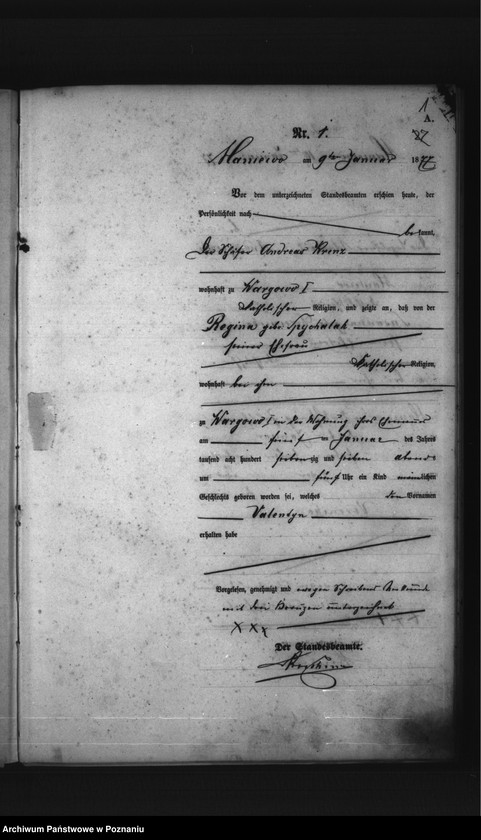 1
A.
Nr. 1.
am 9ten Januar 1877
Vor dem unterzeichneten Standesbeamten erschien heute, der
Persönlichkeit nach
be kannt,
Der Schäfer Andreas Krenz
wohnhaft zu Wargowo I
katholischer Religion, und zeigte an, daß von der
Regina geb. Spychalak
seiner Ehefrau
katholischer Religion,
wohnhaft bei ihm
zu Wargowo I in der Wohnung ihres Ehemannes
am fünf ten Januar des Jahres
tausend acht hundert sieben zig und sieben abends
um fünf Uhr ein Kind männlichen
Geschlechts geboren worden sei, welches den Vornamen
Valentyn
erhalten habe
Vorgelesen, genehmigt und wegen Schreibens Unkunde
mit drei Kreuzen unterzeichnet
X X X
Der Standesbeamte.
Archiwum Państwowe w Poznaniu